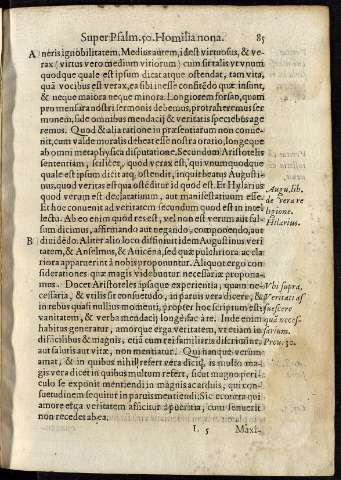 Super Psalm. 50. Homilia nona. 85
A neris ignobilitatem. Medius autem, id est virtuosus, & ve-
rax (virtus vero medium vitiorum) cum sit talis vt vnum
quodque quale est ipsum dicat atque ostendat, tam vita,
quā vocibus est verax, ea sibi inesse confitēdo quæ insint,
& neque maiora neque minora. Longiorem forsan, quam
pro mensura nostri sermonis debemus, protraheremus ser
monem, si de omnibus mendacij & veritatis speciebus age
remus. Quod & alia ratione in præsentiarum non conue-
nit, cum valde moralis debeat esse nostra oratio, longe que
ab omni metaphysica disputatione. Secundum Aristotelis
sententiam, scilicet, quod verax est, qui vnumquodque
quale est ipsum dicit atq; ostendit, inquit beatus Augusti-
nus, quod veritas est qua ostēditur id quod est. Et Hylarius
quod verum est declaratiuum, aut manifestatiuum esse.
Et hoc conuenit ad veritatem secundum quod est in intel
lectu. Ab eo enim quod res est, vel non est verum aut fal-
sum dicimus, affirmando aut negando, componendo, aut
B diuidēdo. Aliter alio loco diffiniuit idem Augustinus veri
tatem, & Anselmus, & Auicēna, sed quæ pulchriora ac cla
riora apparuerint à nobis proponuntur. Aliquot ergo con
siderationes quæ magis videbuntur necessariæ propona-
mus. Docet Aristoteles ipsaque experientia, quam ne-
cessaria, & vtilis sit consuetudo, in paruis vera dicere, &
in rebus quasi nullius momenti, propter hoc scriptum est
vanitatem, & verba mendacij longè fac à te. Inde enim
habitus generatur, amorque erga veritatem, vt etiam in
difficilibus & magnis, etiā cum rei familiaris discrimine,
aut salutis aut vitæ, non mentiatur. Qui nanque verum
amat, & in quibus nihil refert vera dicit, is multo ma-
gis vera dicet in quibus multum refert, sicut magno peri-
culo se exponit mentiendi in magnis ac arduis, qui con-
suetudinem sequitur in paruis mentiendi. Sic è contra qui
amore erga veritatem afficitur à pueritia, cum senuerit
non recedet ab ea.
Augu. lib.
de vera re
ligione.
Hilarius.
Vbi supra.
Veritati as
suescere
quā neces-
sarium.
Prou. 30.
L 5 Maxi-